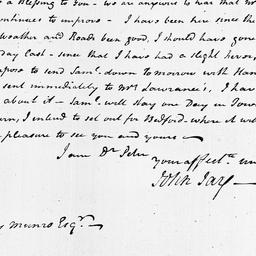 a Blessing to you - we are anxious to hear that Mr
continues to improve - I have been here since the
Weather and Roads been good, I should have gone
day last - since that I have had a slight
to send Saml. down to morrow with Han
sent immediately to Mr Lawrance's. I have
about it - Saml. will stay one Day in Town
I intend to set out for Bedford - where it will
pleasure to see you and yours -
I am Dr Peter
your affect. un
John Jay -
Munro Esqr. -